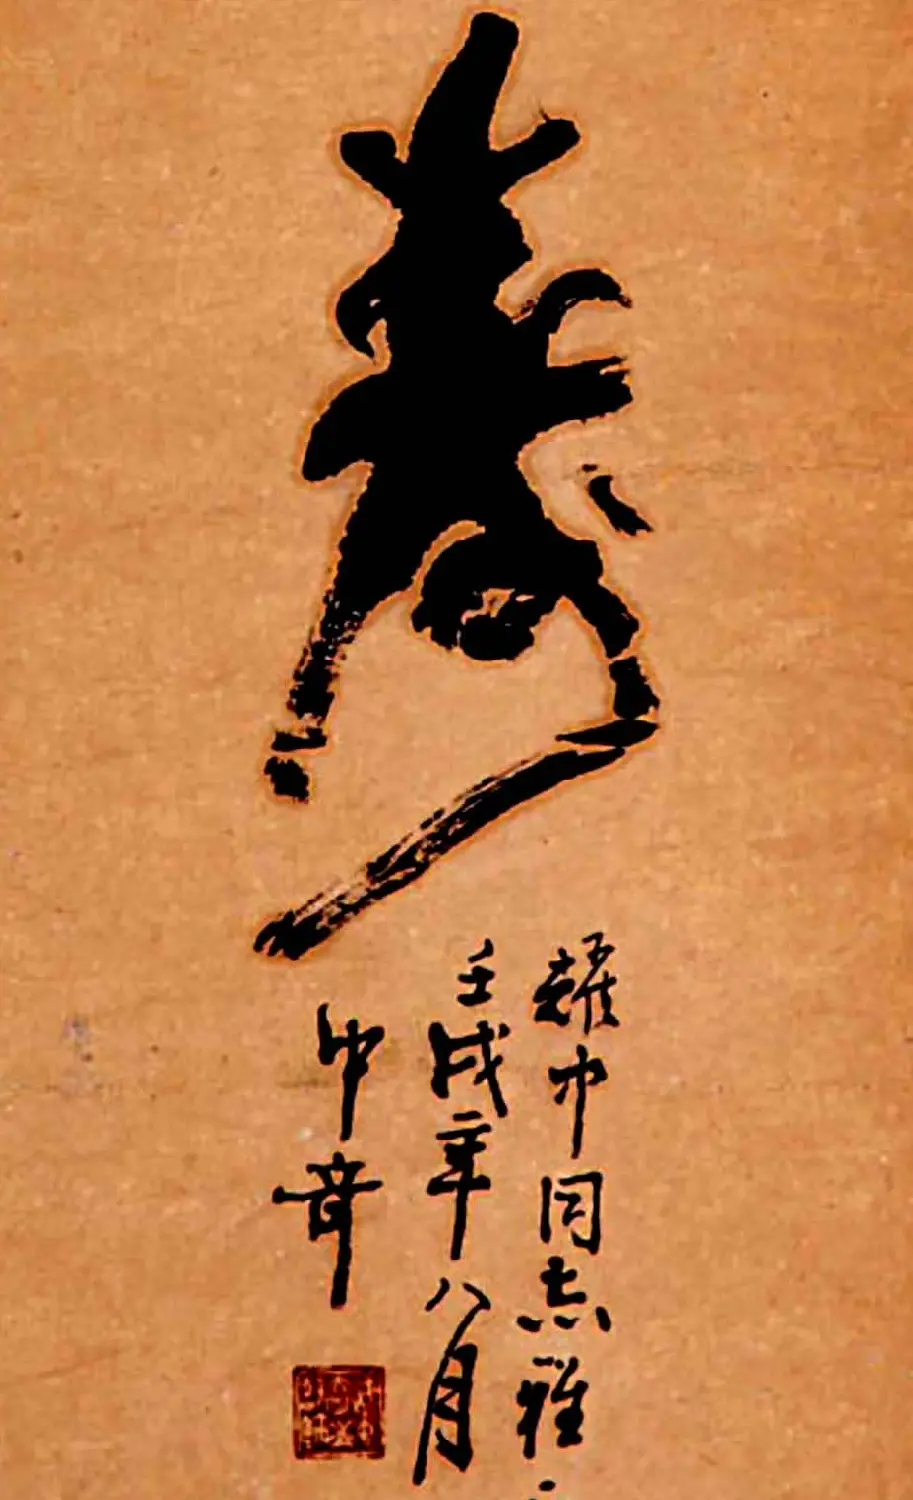 寿
耀中同志雅
壬戌年八月